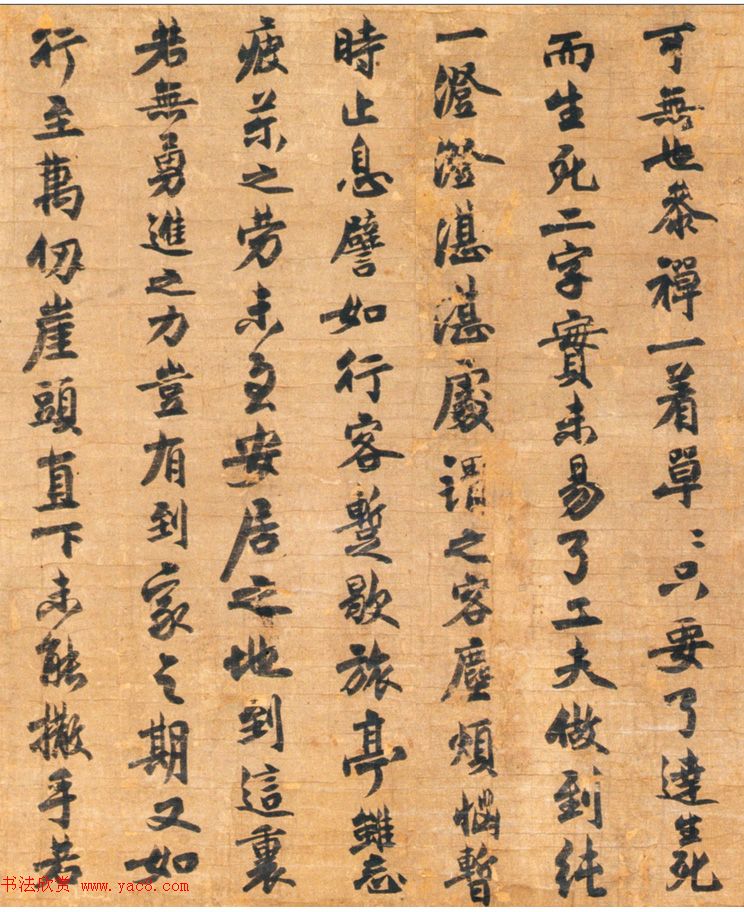 可無也叅禪一着單〻只要了達生死
而生死二字實未易了工夫做到純
一澄澄湛湛處謂之客塵煩惱暫
時止息譬如行客蹔歇旅亭雖忘
疲苶之勞未至安居之地到這裏
若無勇進之力豈有到家之期又如
行至萬仭崖頭直下未能撒手若
书法欣赏 www.yac8.com